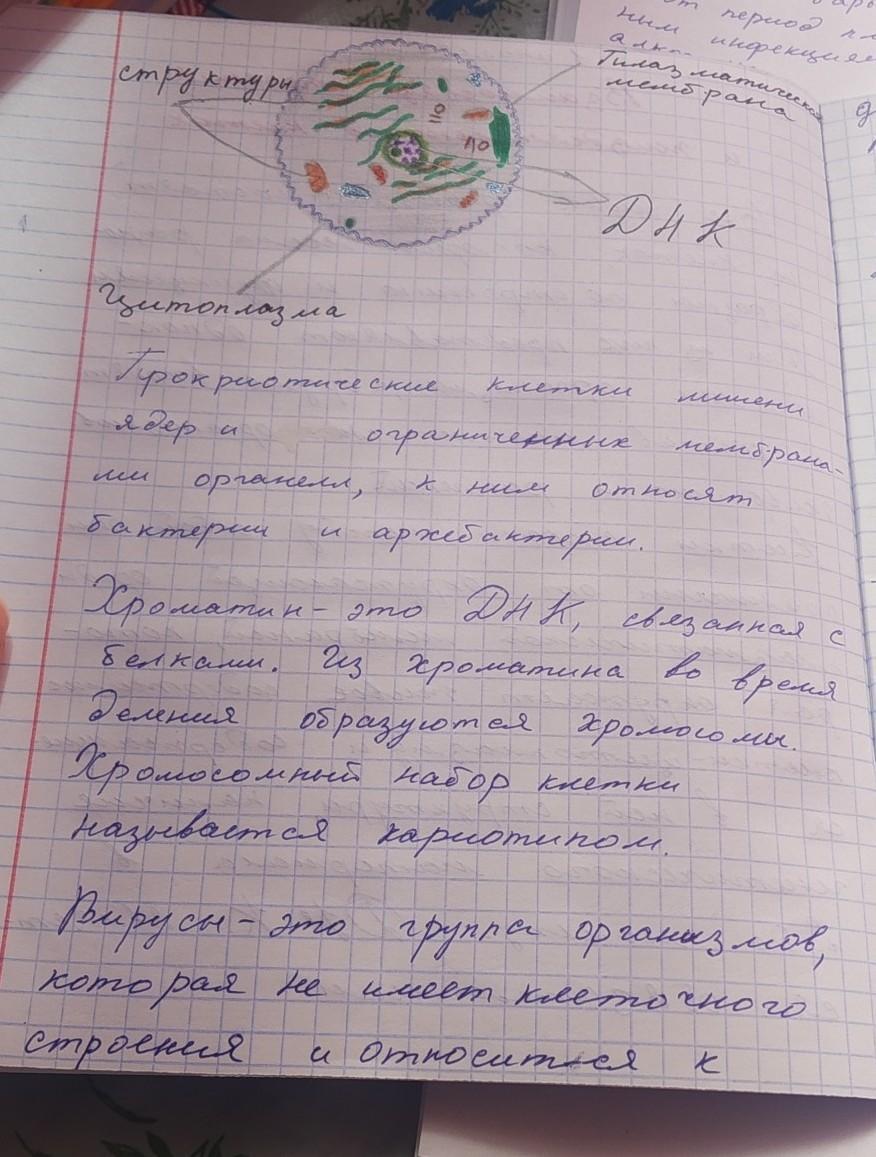 от период
ним инфекция
структуры
Плазматическая
мембрана
ДНК
Цитоплазма
Прокриотические клетки лишены
ядер и ограниченных мембрана-
ми органелл, к ним относят
бактерии и архебактерии.
Хроматин - это ДНК, связанная с
белками. Из хроматина во время
деления образуются хромосомы.
Хромосомный набор клетки
называется кариотипом.
Вирусы - это группа организмов,
которая не имеет клеточного
строения и относится к